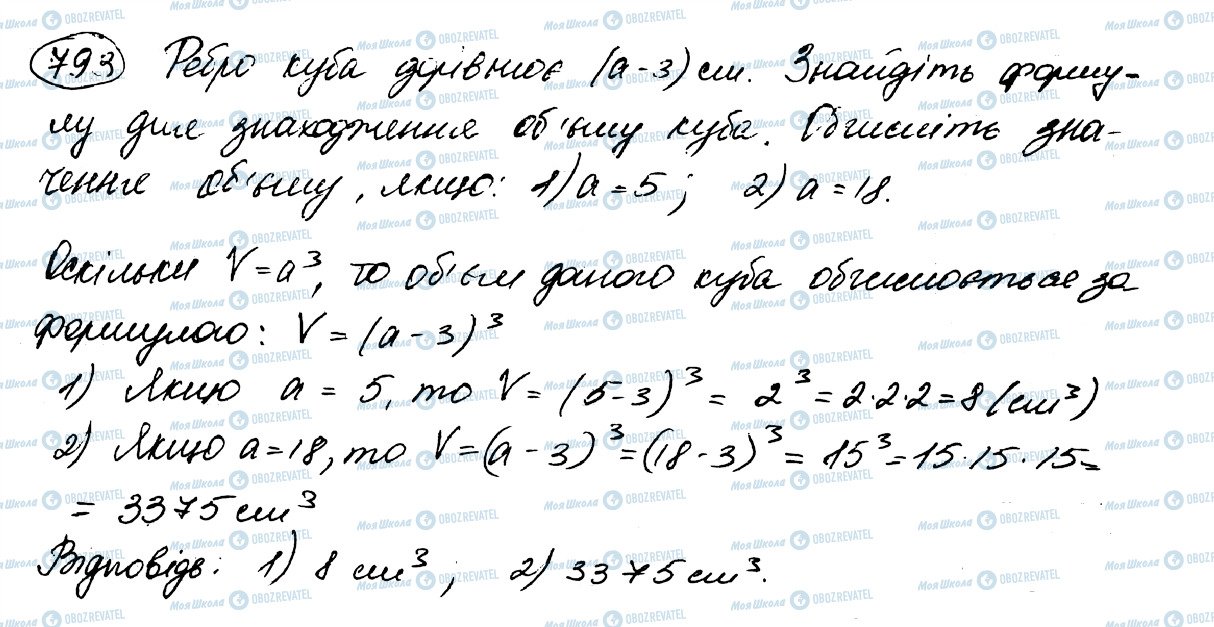 793 Ребро куба дорівнює (а-3) см. Знайдіть форму-
лу для знаходження об'єму куба. Обчисліть зна-
чення об'єму, якщо: 1) а=5; 2) а=18.
Оскільки V=а³, то об'єм даного куба обчислюється за
формулою: V=(а-3)³
1) Якщо а = 5, то V=(5-3)³ = 2³=2·2·2=8(см³)
2) Якщо а=18, то V=(а-3)³=(18-3)³=15³=15·15·15=
= 3375 см³
Відповідь: 1) 8 см³; 2) 3375 см³.
Моя Школа OBOZREVATEL